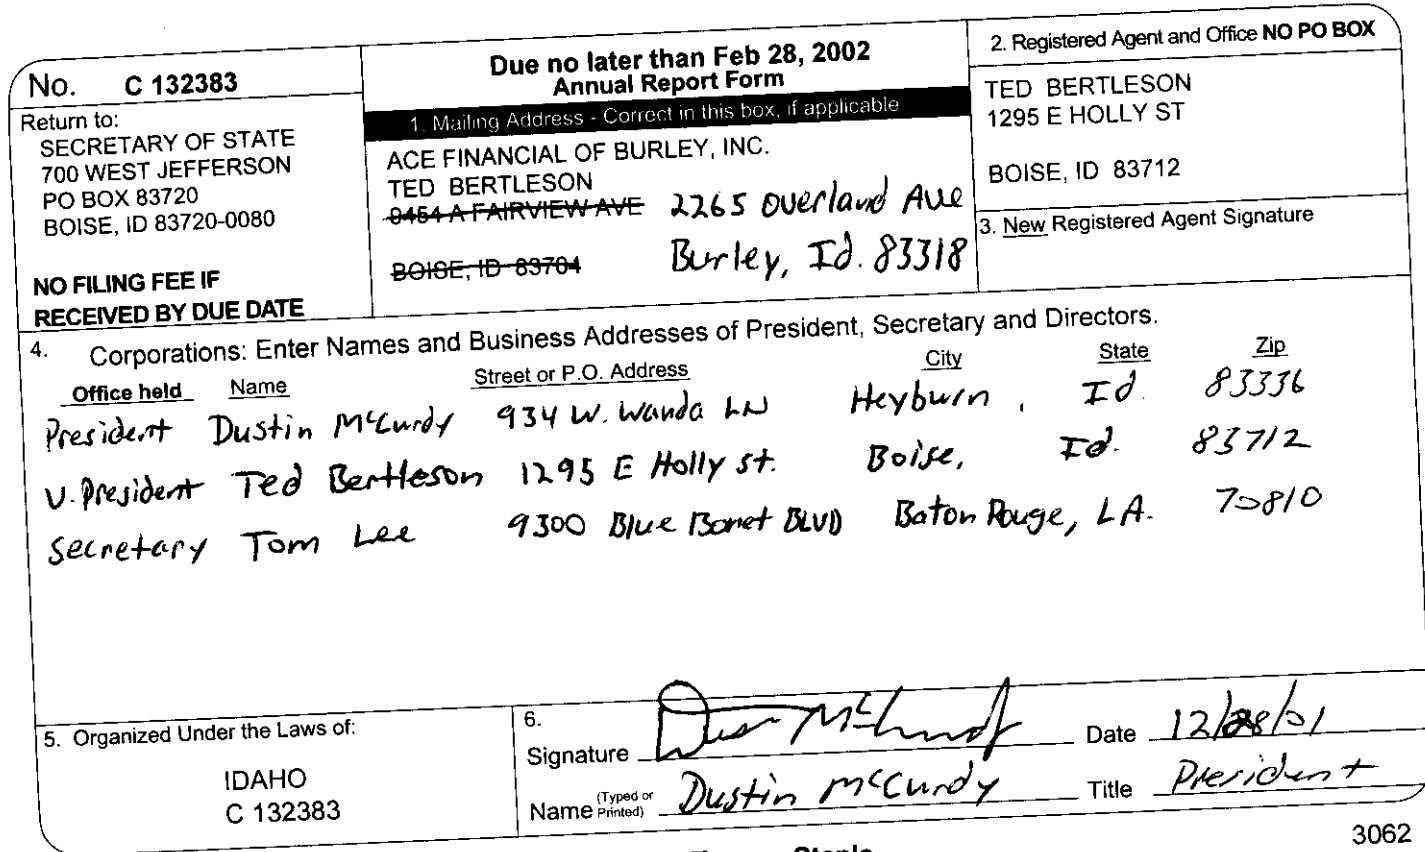 No. C 132383
Return to:
SECRETARY OF STATE
700 WEST JEFFERSON
PO BOX 83720
BOISE, ID 83720-0080
NO FILING FEE IF
RECEIVED BY DUE DATE
Due no later than Feb 28, 2002
Annual Report Form
1. Mailing Address - Correct in this box, if applicable
ACE FINANCIAL OF BURLEY, INC.
TED BERTLESON
9454 A FAIRVIEW AVE 2265 Overland Ave
BOISE, ID 83704 Burley, Id. 83318
2. Registered Agent and Office NO PO BOX
TED BERTLESON
1295 E HOLLY ST
BOISE, ID 83712
3. New Registered Agent Signature
4. Corporations: Enter Names and Business Addresses of President, Secretary and Directors.
Office held Name Street or P.O. Address City State Zip
President Dustin McCurdy 934 W. Wanda LN Heyburn, Id. 83336
V. President Ted Bertleson 1295 E Holly st. Boise, Id. 83712
Secretary Tom Lee 9300 Blue Bonet BLVD Baton Rouge, LA. 70810
5. Organized Under the Laws of:
IDAHO
C 132383
6.
Signature Date 12/28/01
Name (Typed or Printed) Dustin McCurdy Title President
3062